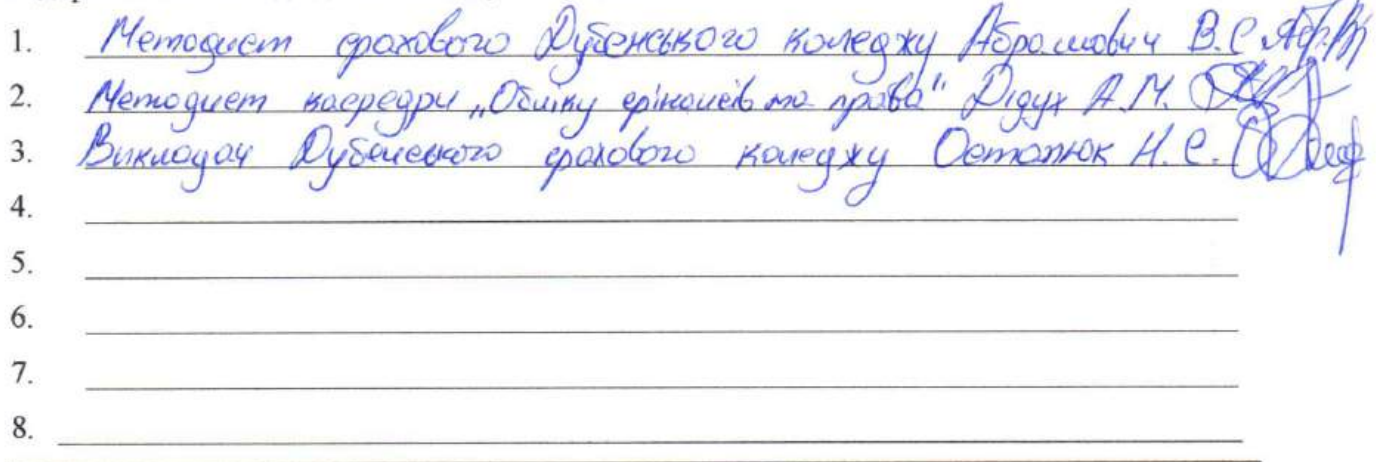 1. Методист фахового Дубенського коледжу Абрамович В.С.
2. Методист кафедри „Обліку фінансів та права" Дідух А.М.
3. Викладач Дубенського фахового коледжу Остапюк Н.С.
4.
5.
6.
7.
8.